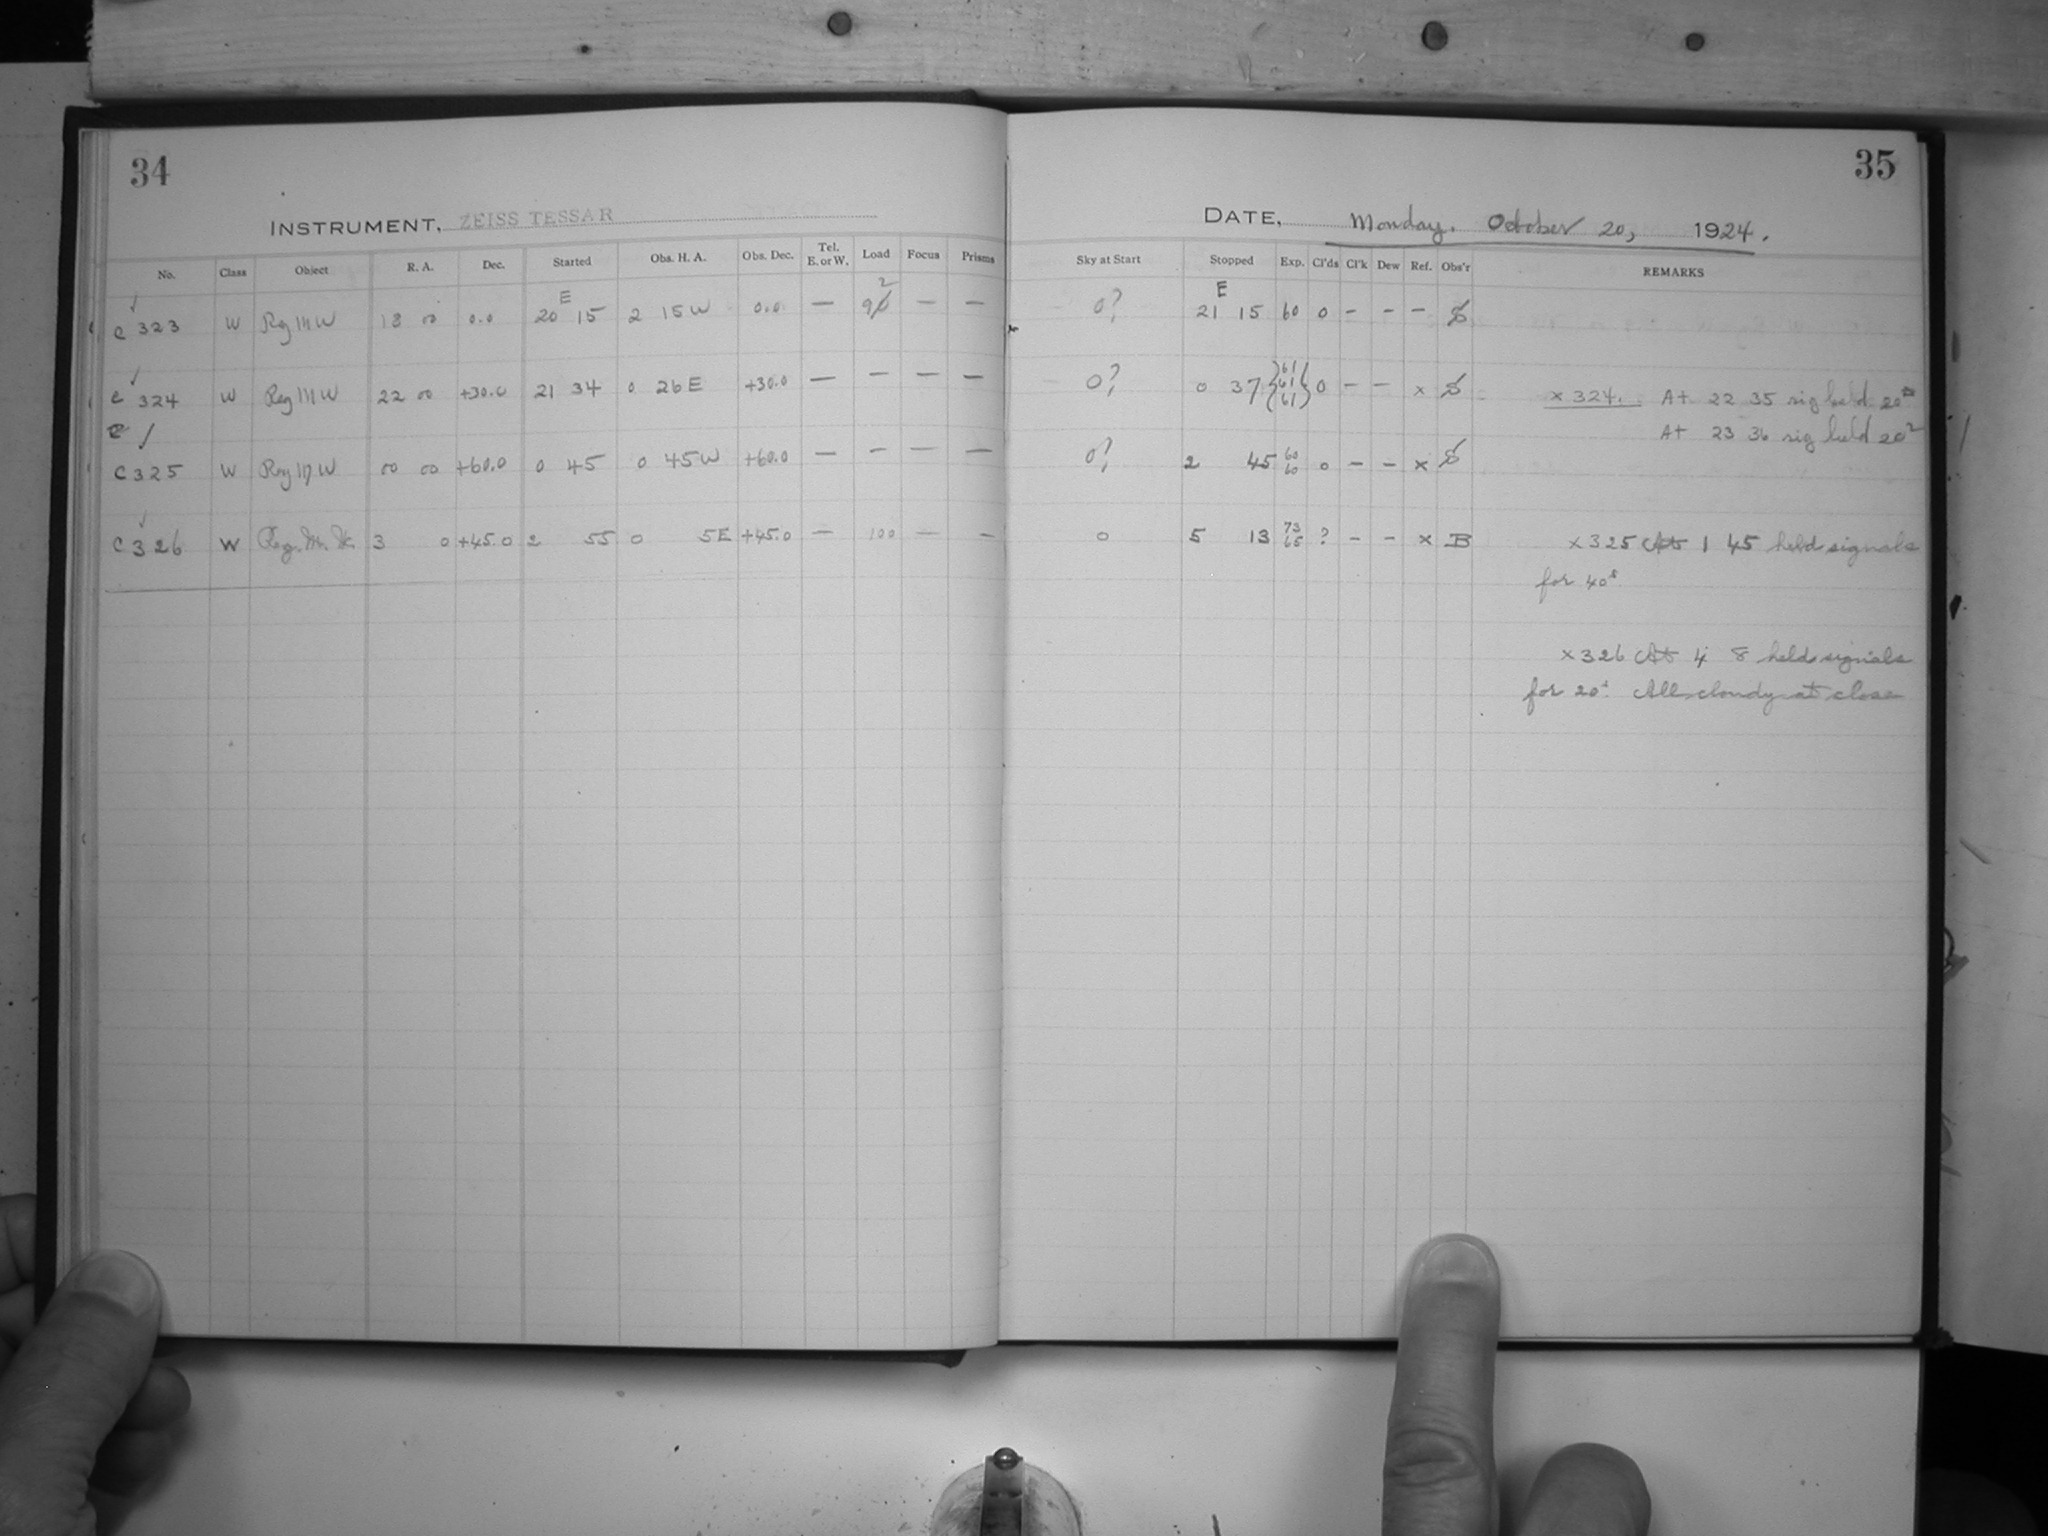 34
INSTRUMENT, ZEISS TESSAR
No. Class Object R. A. Dec. Started Obs. H. A. Obs. Dec. Tel. E. or W. Load Focus Prisms
C 323 W Reg M W 18 00 0.0 20 E 15 2 15 W 0.0 — 92 — —
C 324 W Reg M W 22 00 +30.0 21 34 0 26 E +30.0 — — — —
C 325 W Reg M W 00 00 +60.0 0 45 0 45 W +60.0 — — — —
C 326 W Reg. M. W. 3 0 +45.0 2 55 0 5 E +45.0 — 100 — —
35
DATE, Monday, October 20, 1924.
Sky at Start Stopped Exp. Cl'ds Cl'k Dew Ref. Obs'r REMARKS
0? 21 E 15 60 0 - - -
0? 0 37 {61 61 61} 0 - - x
x 324. At 22 35 sig held 20
At 23 36 sig held 20
0? 2 45 60 60 0 - - x
0 5 13 73 65 ? - - x B
x 325 At 1 45 held signals
for 40s
x 326 At 4 8 held signals
for 20s. All cloudy at close